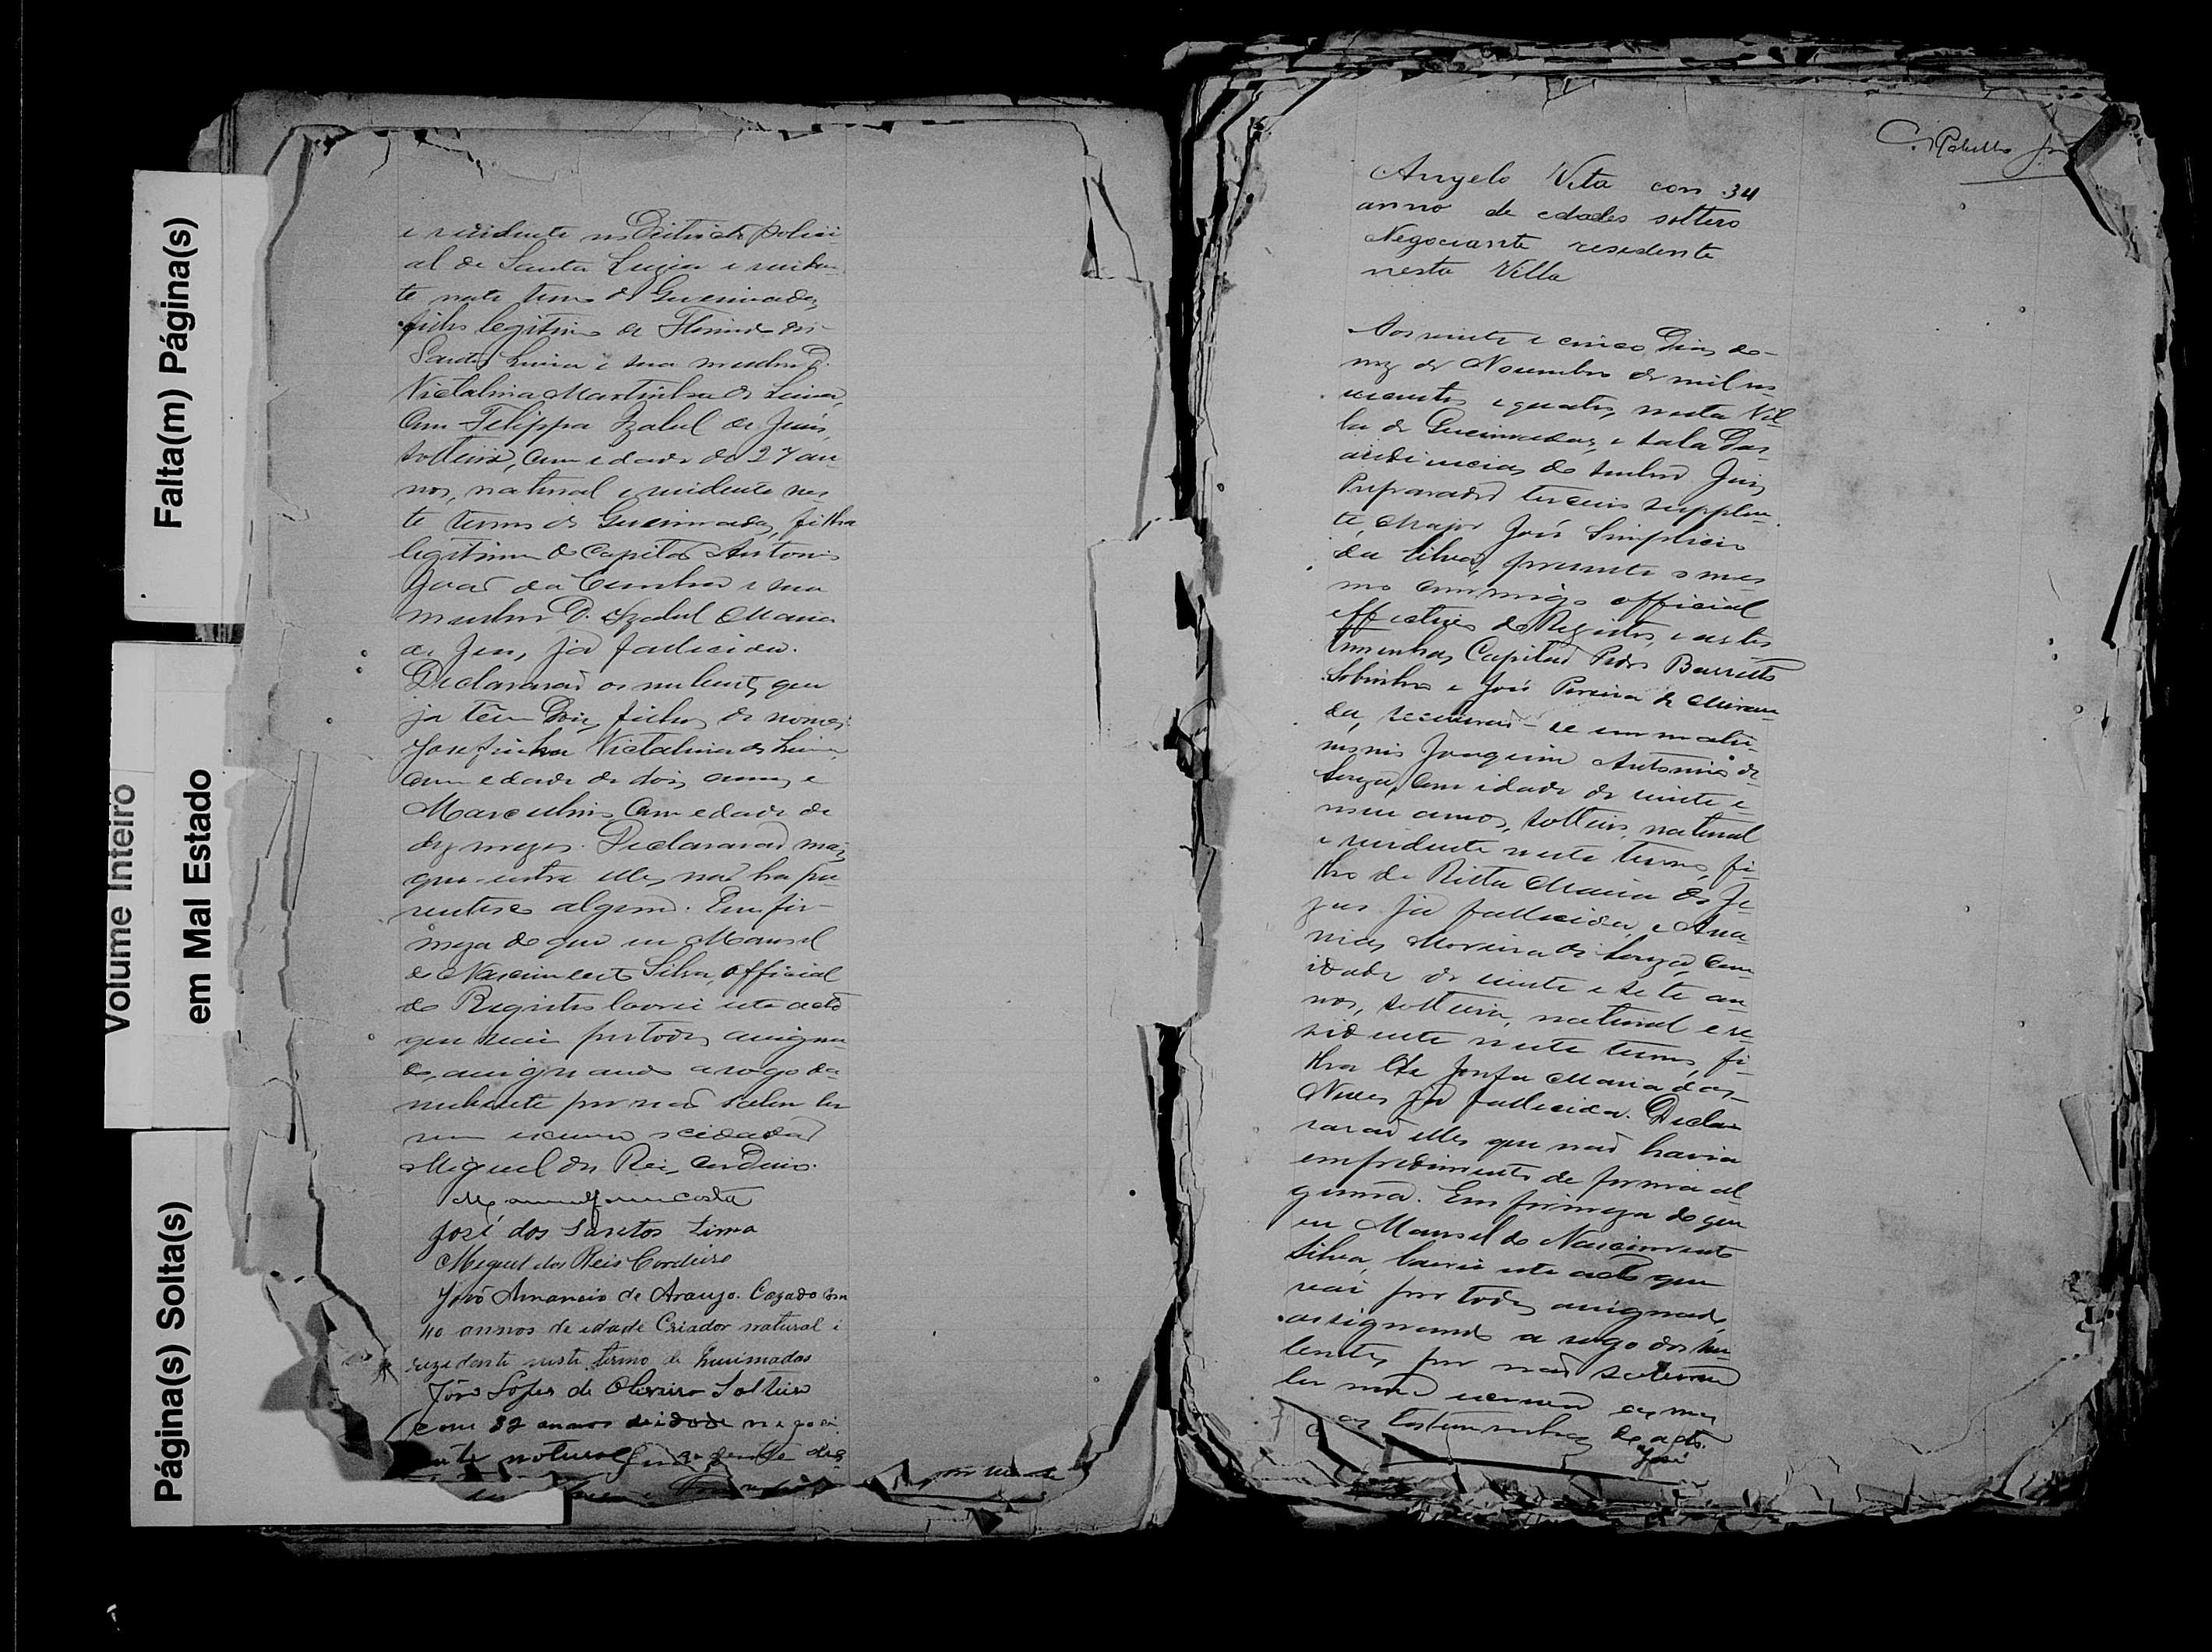 Falta(m) Página(s)
Volume Inteiro
em Mal Estado
Página(s) Solta(s)
e residente no Districto polici-
al de Santa Luzia e residen-
te neste termo de Queimadas,
filho legitimo de
Santos Lima e sua mulher D.
Victalina Martinha de Lima,
com Filippa Izabel de Jesus,
solteira, com edade de 27 an-
nos, natural e residente nes-
te termo de Queimadas, filha
legitima do Capitão Antonio
João da Cunha e sua
mulher D. Izabel Maria
de Jesus, já fallecida.
Declararão os nubentes que
já têm dois filhos de nomes:
Josefinha Victalina de Lima,
com edade de dois annos e
Marculino, com edade de
dez mezes. Declararão mais
que entre elles não ha pa-
rentesco algum. Em fir-
meza do que eu Manoel
do Nascimento Silva, official
do Registro lavrei este acto
que vai por todos assigna-
do, assignando a rogo da
nubente por não saber ler
nem escrever o cidadão
Miguel dos Reis Cordeiro.
José dos Santos Lima
Miguel dos Reis Cordeiro
João Amancio de Araujo. Cazado com
40 annos de idade Criador natural i
rezedente neste termo de Queimadas
João Lopes de Oliveira Solteiro
com 32 annos de idade negoci
ante natural
C. Rabello Jr
Angelo Vita con 34
anno de edades soltero
Negociante resedente
nesta Villa
Aos vinte e cinco dias do
mez de Novembro de mil no-
vecentos e quatro, nesta Vil-
la de Queimadas, e sala das
audiencias do senhor Juiz
Preparador terceiro supplen-
te, Major José Simplicio
da Silva, presente o mes-
mo commigo official
effectivo do Registro, e as tes-
timunhas Capitão Pedro Barretto
Sobrinho e José Pereira de Miran-
da, receberão-se em matri-
monio Joaquim Antonio de
Souza, com idade de vinte e
nove annos, solteiro, natural
e residente neste termo, fi-
lho de Ritta Maria de Je-
zus já fallecida, e Ana-
nias Moreira de Souza, com
idade de vinte e sete an-
nos, solteira, natural e re-
sidente neste termo, fi-
lha de Josefa Maria das
Neves já fallecida. Decla-
rarão elles que não havia
empedimento de forma al-
guma. Em firmeza do que
eu Manoel do Nascimento
Silva, lavrei este acto que
vai por todos assignado,
assignando a rogo dos nu-
bentes, por não saberem
ler nem escrever
as testemunhas do acto.
José